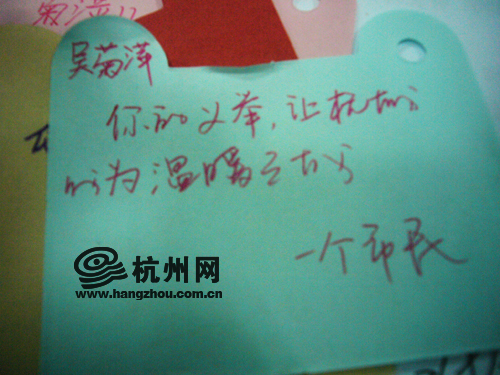 吴菊萍
你的义举,让杭城
成为温暖之城
一个市民
杭州网
www.hangzhou.com.cn